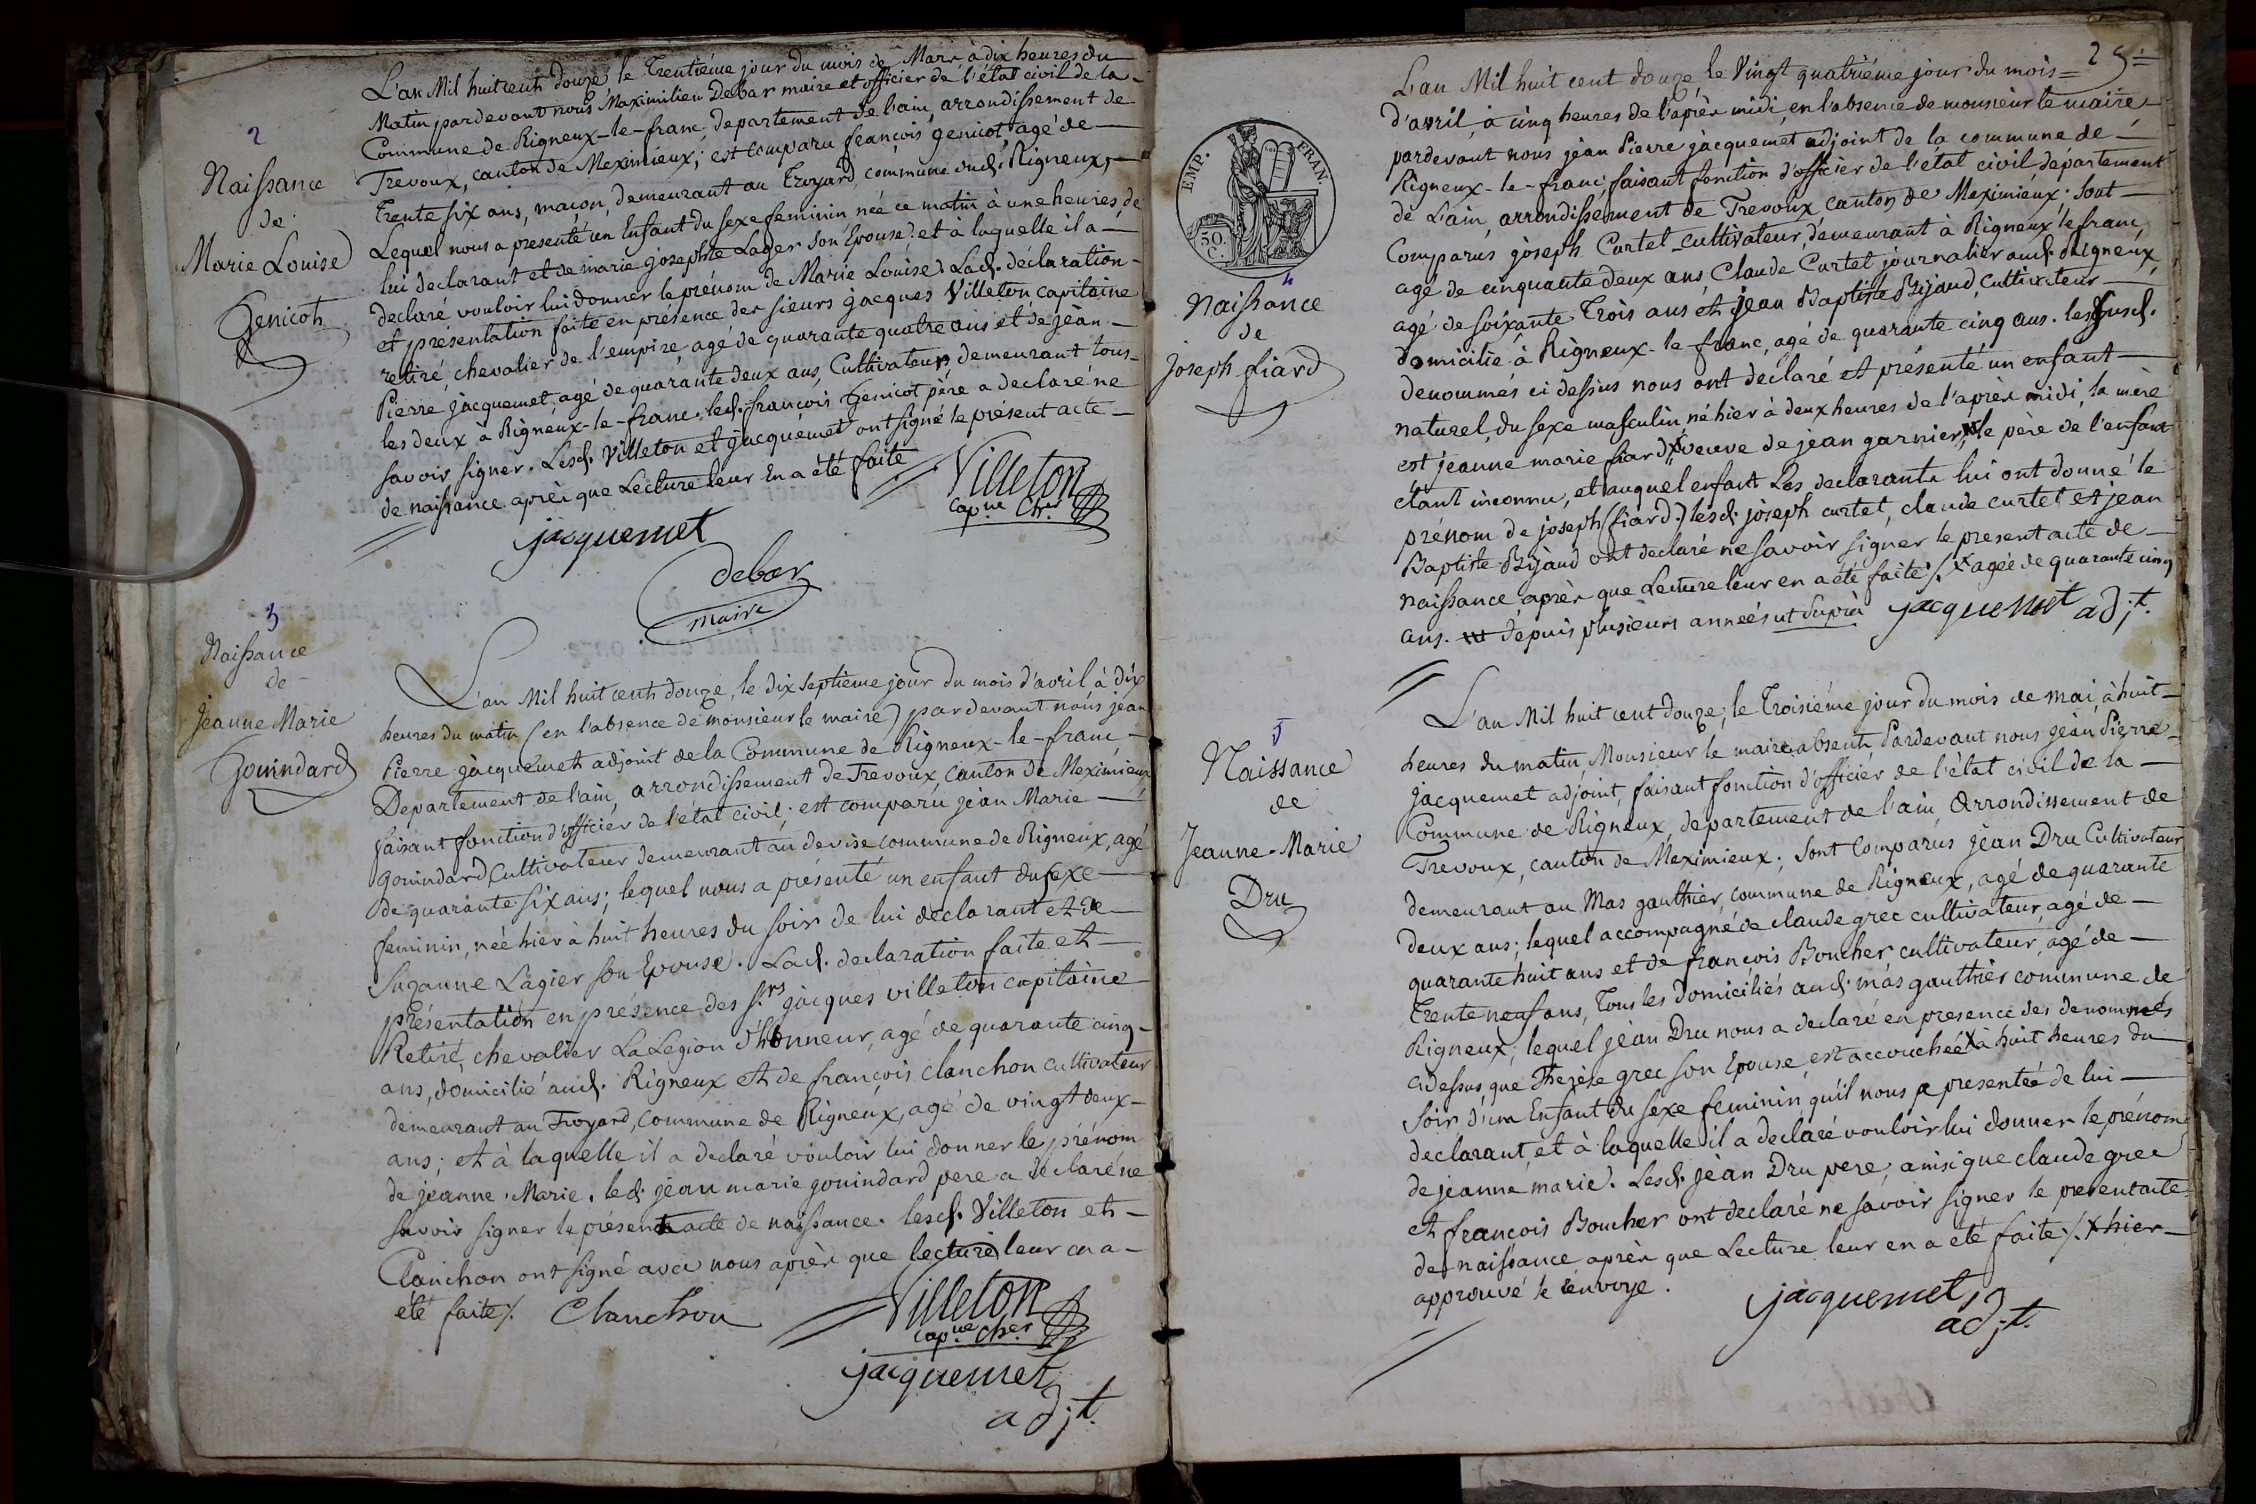 2
Naissance
de
Marie Louise
Genicot
L'an Mil huit cent douze le Trentième jour du mois de Mars à dix heures du
Matin pardevant nous Maximilien Debar maire et officier de l'état civil de la
Commune de Rigneux-le-franc, departement de l'ain, arrondissement de
Trevoux, canton de Meximieux; est comparu françois genicot, agé de
Trente six ans, maçon, demeurant au Troyard commune dud. Rigneux,
Lequel nous a presenté un Enfant du sexe feminin, née ce matin à une heures, de
lui declarant et de marie josephte Lager son Epouse: et à laquelle il a
declaré vouloir lui donner le prénom de Marie Louise. Lad. déclaration
et présentation faite en présence des sieurs jacques Villeton, capitaine
retiré, chevalier de l'empire, agé de quarante quatre ans et de jean
Pierre jacquemet, agé de quarante deux ans, Cultivateur, demeurant tous
les deux à Rigneux-le-franc. led. françois Genicot père a declaré ne
savoir signer. Lesd. Villeton et jacquemet ont signé le présent acte
de naissance après que Lecture leur En a été faite
Villeton
capne Cher
jacquemet
debar
maire
3
Naissance
de
Jeanne Marie
Gouindard
L'an Mil huit cent douze, le dix septieme jour du mois d'avril à dix
heures du matin (en l'absence de monsieur le maire) pardevant nous jean
Pierre jacquemet adjoint de la Commune de Rigneux-le-franc
Departement de l'ain, arrondissement de Trevoux, canton de Meximieux,
faisant fonction d'officier de l'état civil; est comparu jean Marie
gouindard, Cultivateur demeurant au devise commune de Rigneux, agé
de quarante six ans; lequel nous a présenté un enfant du sexe
feminin, née hier à huit heures du soir de lui declarant et de
Suzanne Lagier son Epouse. Lad. declaration faite et
présentation en présence des s.rs jacques villeton capitaine
Retiré, chevalier La Legion d'honneur, agé de quarante cinq
ans, domicilié aud. Rigneux et de françois clanchon cultivateur
demeurant au Troyard, commune de Rigneux, agé de vingt deux
ans; et à laquelle il a declaré vouloir lui donner le prénom
de jeanne Marie. led. jean marie gouindard pere a declaré ne
savoir signer le présent acte de naissance. lesd. Villeton et
Clanchon ont signé avec nous après que lecture leur en a
été faite/. Clanchon
Villeton
capne Cher
jacquemet
adjt.
25
EMP. FRAN.
50.
C.
4
Naissance
de
joseph fiard
L'an Mil huit cent douze, le Vingt quatriéme jour du mois
d'avril, à cinq heures de l'après midi, en l'absence de monsieur le maire
pardevant nous jean Pierre jacquemet adjoint de la commune de
Rigneux-le-franc, faisant fonction d'officier de l'état civil, département
de L'ain, arrondissement de Trevoux canton de Meximieux; sont
Comparus joseph Curtet cultivateur, demeurant à Rigneux le franc,
agé de cinquante deux ans, Claude Curtet journalier aud. Rigneux,
agé de soixante Trois ans et jean Baptiste Bijaud, Cultivateur
domicilié à Rigneux-le-franc, agé de quarante cinq ans. les susd.
denommés ci dessus nous ont déclaré et présenté un enfant
naturel, du sexe masculin, né hier à deux heures de l'après midi, la mère
est jeanne marie fiard x veuve de jean garnier, le père de l'enfant
etant inconnu, et auquel enfant Les declarants lui ont donné le
prénom de joseph (fiard.) lesd. joseph curtet, claude curtet et jean
Baptiste Bijaud ont declaré ne savoir signer le present acte de
naissance après que Lecture leur en a été faite/. x agée de quarante cinq
ans. depuis plusieurs années ut suprà jacquemet adjt.
5
Naissance
de
Jeanne-Marie
Dru
L'an Mil huit cent douze, le Troisiéme jour du mois de mai, à huit
heures du matin, Monsieur le maire absent, Pardevant nous jean Pierre
jacquemet adjoint, faisant fonction d'officier de l'état civil de la
Commune de Rigneux, departement de l'ain, Arrondissement de
Trevoux, canton de Meximieux; sont Comparus jean Dru Cultivateur
demeurant au Mas gauthier, commune de Rigneux, agé de quarante
deux ans; lequel accompagné de claude grec cultivateur, agé de
quarante huit ans et de françois Boucher cultivateur, agé de
Trente neuf ans, Tous les domiciliés aud. mas gauthier commune de
Rigneux; lequel jean Dru nous a declaré en presence des denommés
cidessus que Therèse grec son Epouse, est accouchée x à huit heures du
soir d'un Enfant du sexe feminin qu'il nous a presentée de lui
declarant et à laquelle il a declaré vouloir lui donner le prénom
de jeanne marie. Lesd. jean Dru pere, ainsi que claude grec
et françois Boucher ont declaré ne savoir signer le present acte
de naissance après que Lecture leur en a été faite/. x hier
approuvé le renvoye.
jacquemet,
adjt.